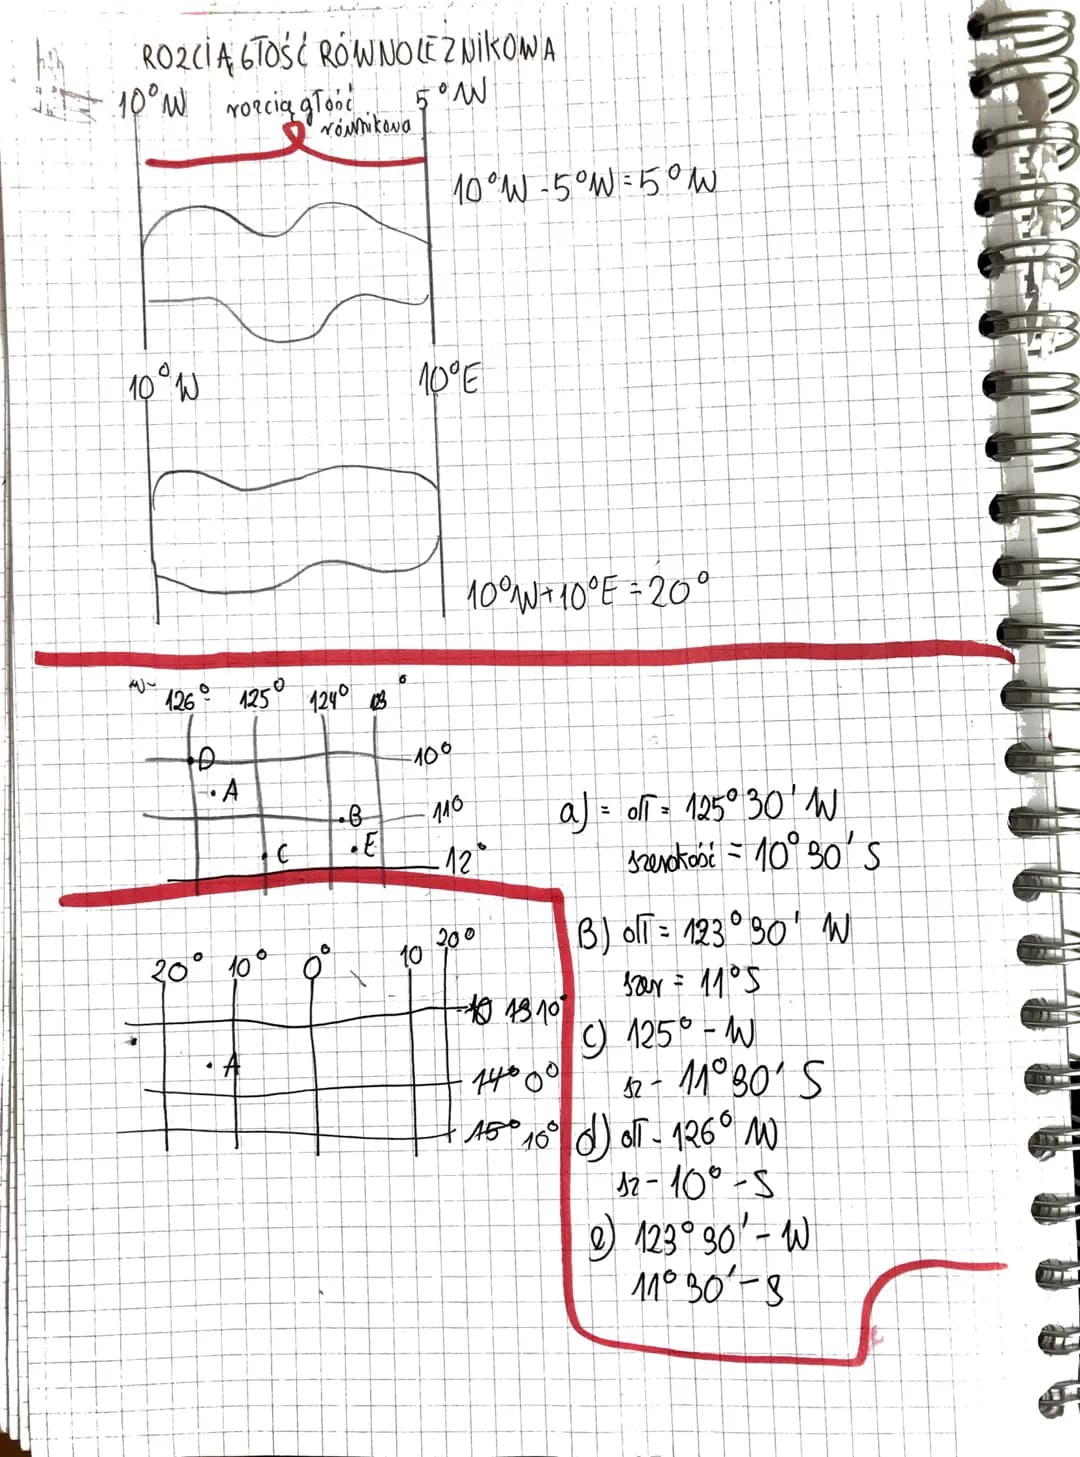 ROZCIĄGŁOŚĆ RÓWNOLEŻNIKOWA
10°W rozciągłość 5°W
równikowa
10°W - 5°W = 5°W
10°W 10°E
10°W + 10°E = 20°
126° 125° 124° 123°
D 10°
A
B 11°
C E 12°
a) = dł = 125°30' W
szerokość = 10°30' S
B) dł = 123°30' W
szer = 11°S
c) 125° - W
sz - 11°30' S
d) dł - 126° W
sz - 10° - S
e) 123°30' - W
11°30' - S
20° 10° 0° 10 20°
10 13 10°
A
14° 0°
15° 10°